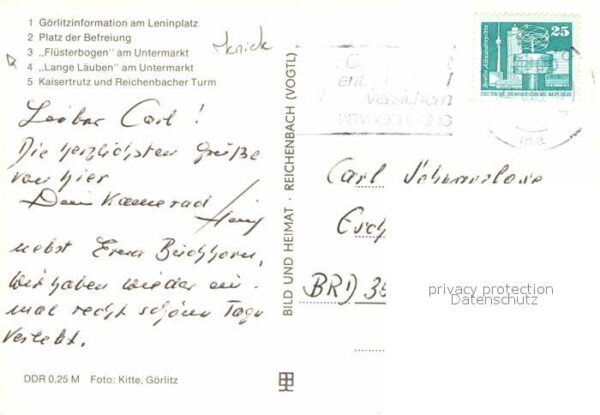 1 Görlitzinformation am Leninplatz
2 Platz der Befreiung
3 „Flüsterbogen" am Untermarkt
4 „Lange Läuben" am Untermarkt
5 Kaisertrutz und Reichenbacher Turm
Lieber Carl!
Die herzlichsten Grüße
von hier
Dein Kamerad
nebst Erna Buchhorn,
Wir haben wieder ein-
mal recht schöne Tage
verlebt.
DDR 0,25 M Foto: Kitte, Görlitz
BILD UND HEIMAT · REICHENBACH (VOGTL)
versichern
Berlin, Alexanderplatz
25
DEUTSCHE DEMOKRATISCHE REPUBLIK
Carl
Esch
BRD 35
privacy protection
Datenschutz